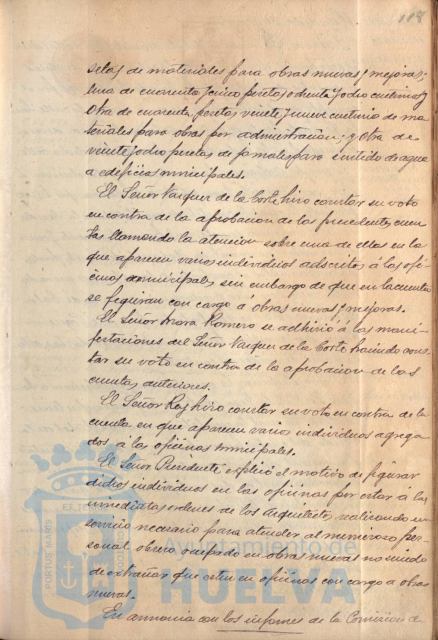 118
setas de materiales para obras nuevas y mejoras;
una de cuarenta y cinco pesetas ochenta y ocho centimos y
otra de cuarenta pesetas veinte y nueve centimos de ma-
teriales para obras por administracion; y otra de
veinte y ocho pesetas de jornales para surtido de agua
a edificios municipales.
El Señor Vazquez de la Corte hizo constar su voto
en contra de la aprobacion de las precedentes cuen-
tas llamando la atencion sobre una de ellas en la
que aparecen varios individuos adscritos á las ofi-
cinas municipales sin embargo de que en la cuenta
se figuran con cargo á obras nuevas y mejoras.
El Señor Mora Romero se adhirió á las mani-
festaciones del Señor Vazquez de la Corte haciendo cons-
tar su voto en contra de la aprobacion de las
cuentas anteriores.
El Señor Rey hizo constar su voto en contra de la
cuenta en que aparecen varios individuos agrega-
dos á las oficinas municipales.
El Señor Presidente esplicó el motivo de figurar
dichos individuos en las oficinas por estar a las
inmediatas ordenes de los Arquitectos, realizando un
servicio necesario para atender al numeroso per-
sonal obrero ocupado en obras nuevas no siendo
de extrañar que esten en oficinas con cargo a obras
nuevas.
En armonia con los informes de la Comision de
PORTUS MARIS
Ayuntamiento de
HUELVA